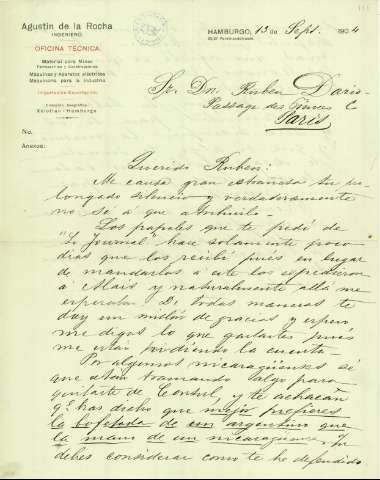 Agustín de la Rocha
INGENIERO
OFICINA TÉCNICA
Material para Minas
Ferrocarriles y Construcciones
Máquinas y Aparatos eléctricos
Maquinaria para la Industria
Importación-Exportación
Dirección telegráfica:
Xolotlan - Hamburgo
No.
Anexos:
HAMBURGO, 13 de Sept. 1904
Sr. Dn. Ruben Dario
Passage des Princes
Paris
Querido Ruben:
Me causa gran estrañesa tu pro-
longado silencio y verdaderamente
no se a que atribuirlo.
Los papeles que te pedí de
"Le Journal" hace solamente pocos
dias que los recibí pues en lugar
de mandarlos a este los espedieron
a y naturalmente allá me
esperaban. De todas maneras te
doy un millón de gracias y espero
me digas lo que gastastes pues
me están pidiendo la cuenta.
Por algunos nicaragüenses sé
que están tramando algo para
quitarte de Consul, y te achacan
q. has dicho que mejor prefieres
la bofetada de un argentino que
la mano de un nicaraguense. Tu
debes considerar como te he defendido